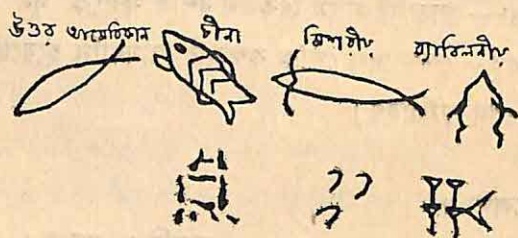 উত্তর আমেরিকান চীনা মিশরীয় ব্যাবিলনীয়